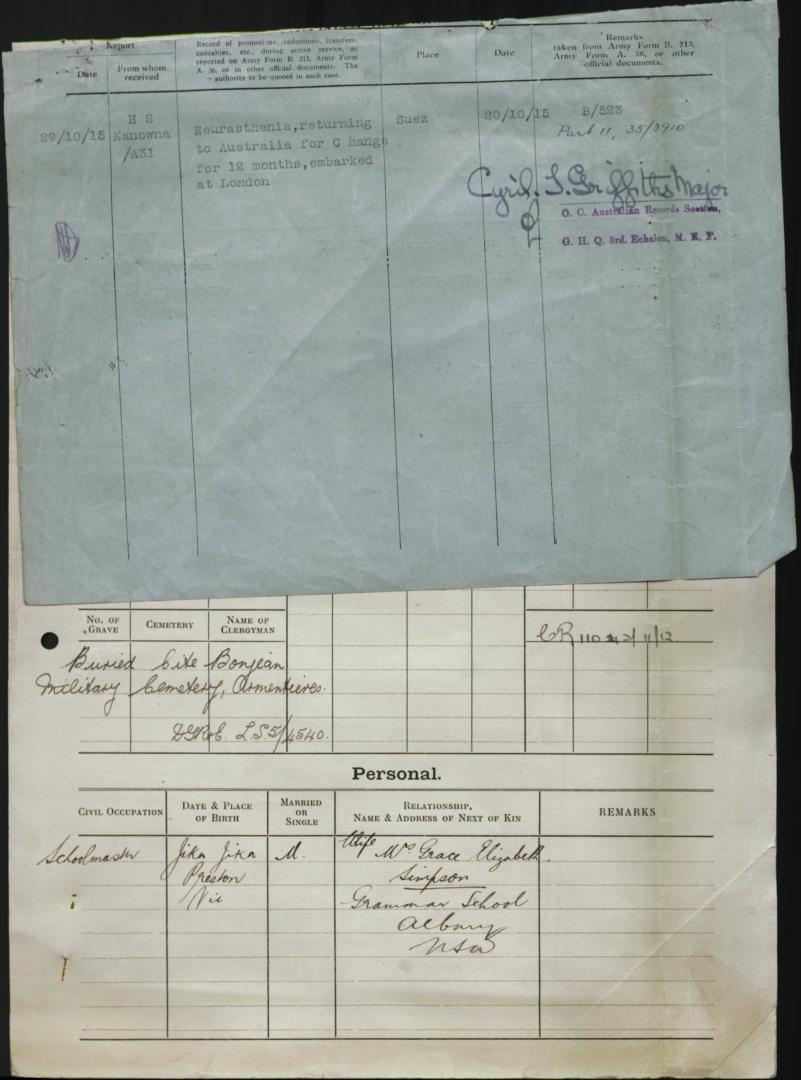 Report
Date
From whom received
Record of promotions, reductions, transfers,
casualties, etc., during active service, as
reported on Army Form B. 213, Army Form
A. 36, or in other official documents. The
authority to be quoted in each case.
Place
Date
Remarks
taken from Army Form B. 213,
Army Form A. 36, or other
official documents.
29/10/15
H S
Kanowna
/A31
Neurasthenia, returning
to Australia for C hange
for 12 months, embarked
at London
Suez
20/10/15
B/523
Part 11, 35/3910
Cyril. S. Griffiths Major
O. C. Australian Records Section,
G. H. Q. 3rd. Echelon, M. E. F.
No. of Grave
Cemetery
Name of Clergyman
Buried Cite Bonjean
Military Cemetery, Armentieres.
L.S.5/4540.
110
Personal.
Civil Occupation
Date & Place of Birth
Married or Single
Relationship,
Name & Address of Next of Kin
REMARKS
Schoolmaster
Jika Jika
Preston
Vic
M.
Wife Mrs Grace Elizabeth
Simpson
Grammar School
Albury
NSW